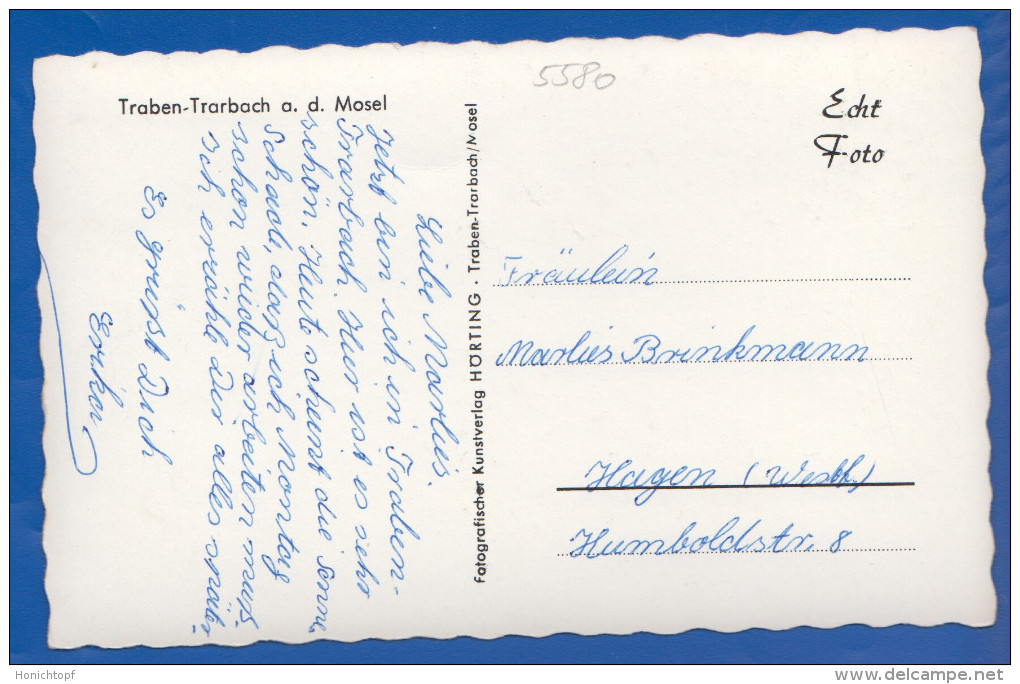 5580
Traben-Trarbach a. d. Mosel
Echt
Foto
Liebe Marlies.
Jetzt bin ich in Traben-
Trarbach. Hier ist es sehr
schön. Heut scheint die Sonne,
Schade, dasz ich Montag
schon wieder arbeiten muß.
ich erzähle Dir alles später.
Es grüßt Dich
Erika.
Fotografischer Kunstverlag HÖRTING · Traben-Trarbach/Mosel
Fräulein
Marlies Brinkmann
Hagen (Westf.)
Humboldstr. 8
Honichtopf
www.delcampe.net